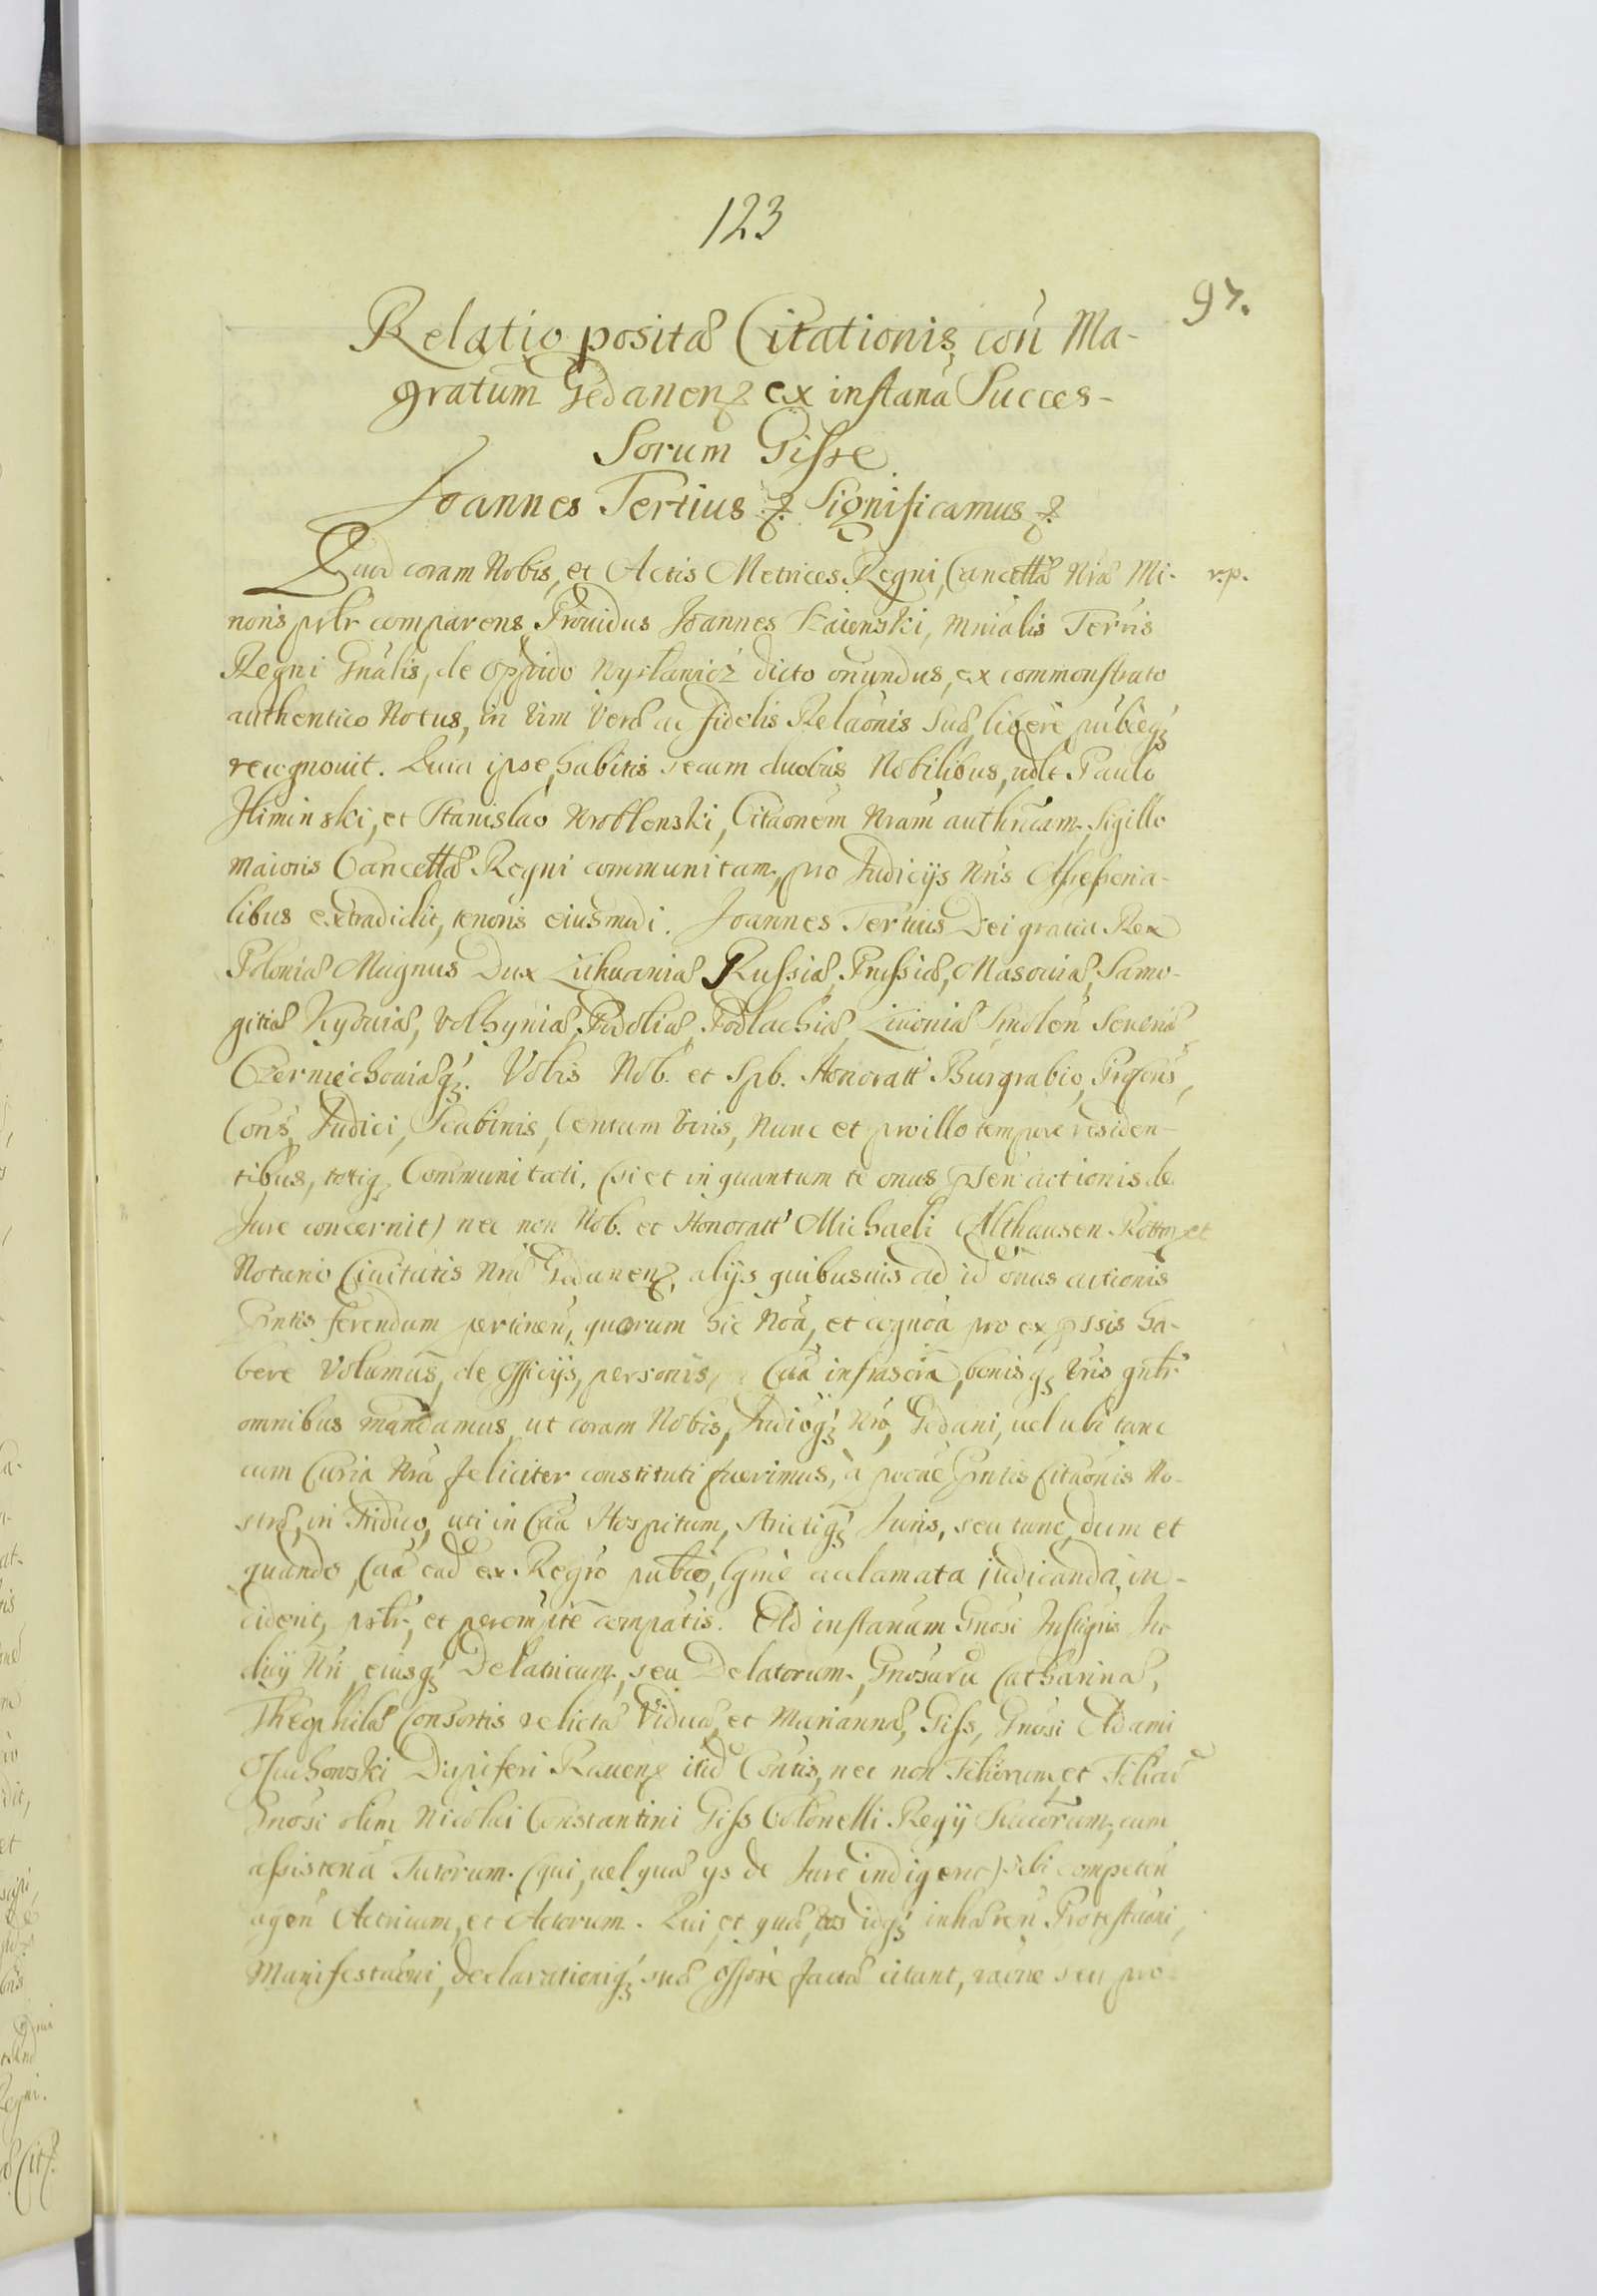 123
97.
Relatio positæ Citationis con Ma-
gratum Gedanen ex instana Succes-
sorum Gisse
Joannes Tertius etc. Significamus etc.
Quia coram Nobis, et Actis Metrices Regni, Cancellæ Nræ Mi- r. p.
noris psltr comparens Prouidus Joannes, Mnialis Terris
Regni Gnalis, de Oppido dicto oriundus, ex commonstrato
authentico Notus, in Vim Veræ ac fidelis Relaonis Suæ, libere publiceq
recognouit. Quia ipse, habitis secum duobus Nobilibus, udlt Paulo
et Stanislao Wroblenski, Citaonem Nram authncam, Sigillo
maioris Cancellæ Regni communitam, pro Judicijs Nris Assessoria-
libus extradidit, tenoris eiusmodi. Joannes Tertius Dei gratia Rex
Poloniæ Magnus Dux Lithuaniæ Russiæ, Prussiæ, Masouiæ, Samo-
gitiæ Kyouiæ, Volhyniæ, Podoliæ, Podlachiæ, Liuoniæ Smolen Seueriæ
Czerniechouiæq. Vobis Nob. et Spb. Honoratt Burgrabio, Prqons,
Cons, Judici, Scabinis, Centum Viris, Nunc et pro illo tempore residen-
tibus, totiq Communitati, (si et in quantum te onus psen actionis de
Jure concernit) nec non Nob. et Honoratt Michaeli Althausen et
Notario Ciuitatis Nræ Gedanen, alijs quibusuis ad id onus actionis
pntis ferendum pertinen, quorum hic Noa, et cognoa pro expssis ha-
bere Volumus, de officijs, personis, Caa infrascra, bonisq Vris gnlr
omnibus mandamus, ut coram Nobis, Judioq Nro, Gedani, uel ubi tunc
cum Curia Nra feliciter constituti fuerimus, a pntis Citaonis No-
stræ, in Triduo, uti in Caa Hospitum, strictiq Juris, seu tunc, dum et
quando, Caa ead ex Regro publco, lgme acclamata iudicanda, in-
ciderit, psltr, et perempte compatis. Ad instanum Gnosi Instigris Ju-
dicij Nri, eiusq Delatricum, seu Delatorum, Gnosaru Catharinæ,
Theophilæ Consortis relictæ Viduæ, et Mariannæ, Giss, Gnosi Adami
Dapiferi Rauen itid Contis, nec non Filiorum, et Filiar
Gnosi olim Nicolai Constantini Giss Colonelli Regij Succorum, cum
assistena Tutorum (qui, uel quæ ijs de Jure indigent) sibi competen
agen Actricum, et Actorum. Qui, et quæ, uos idq inhæren Protestaoni,
Manifestaoni, declarationiq suæ offore factæ citant, raone seu pro-